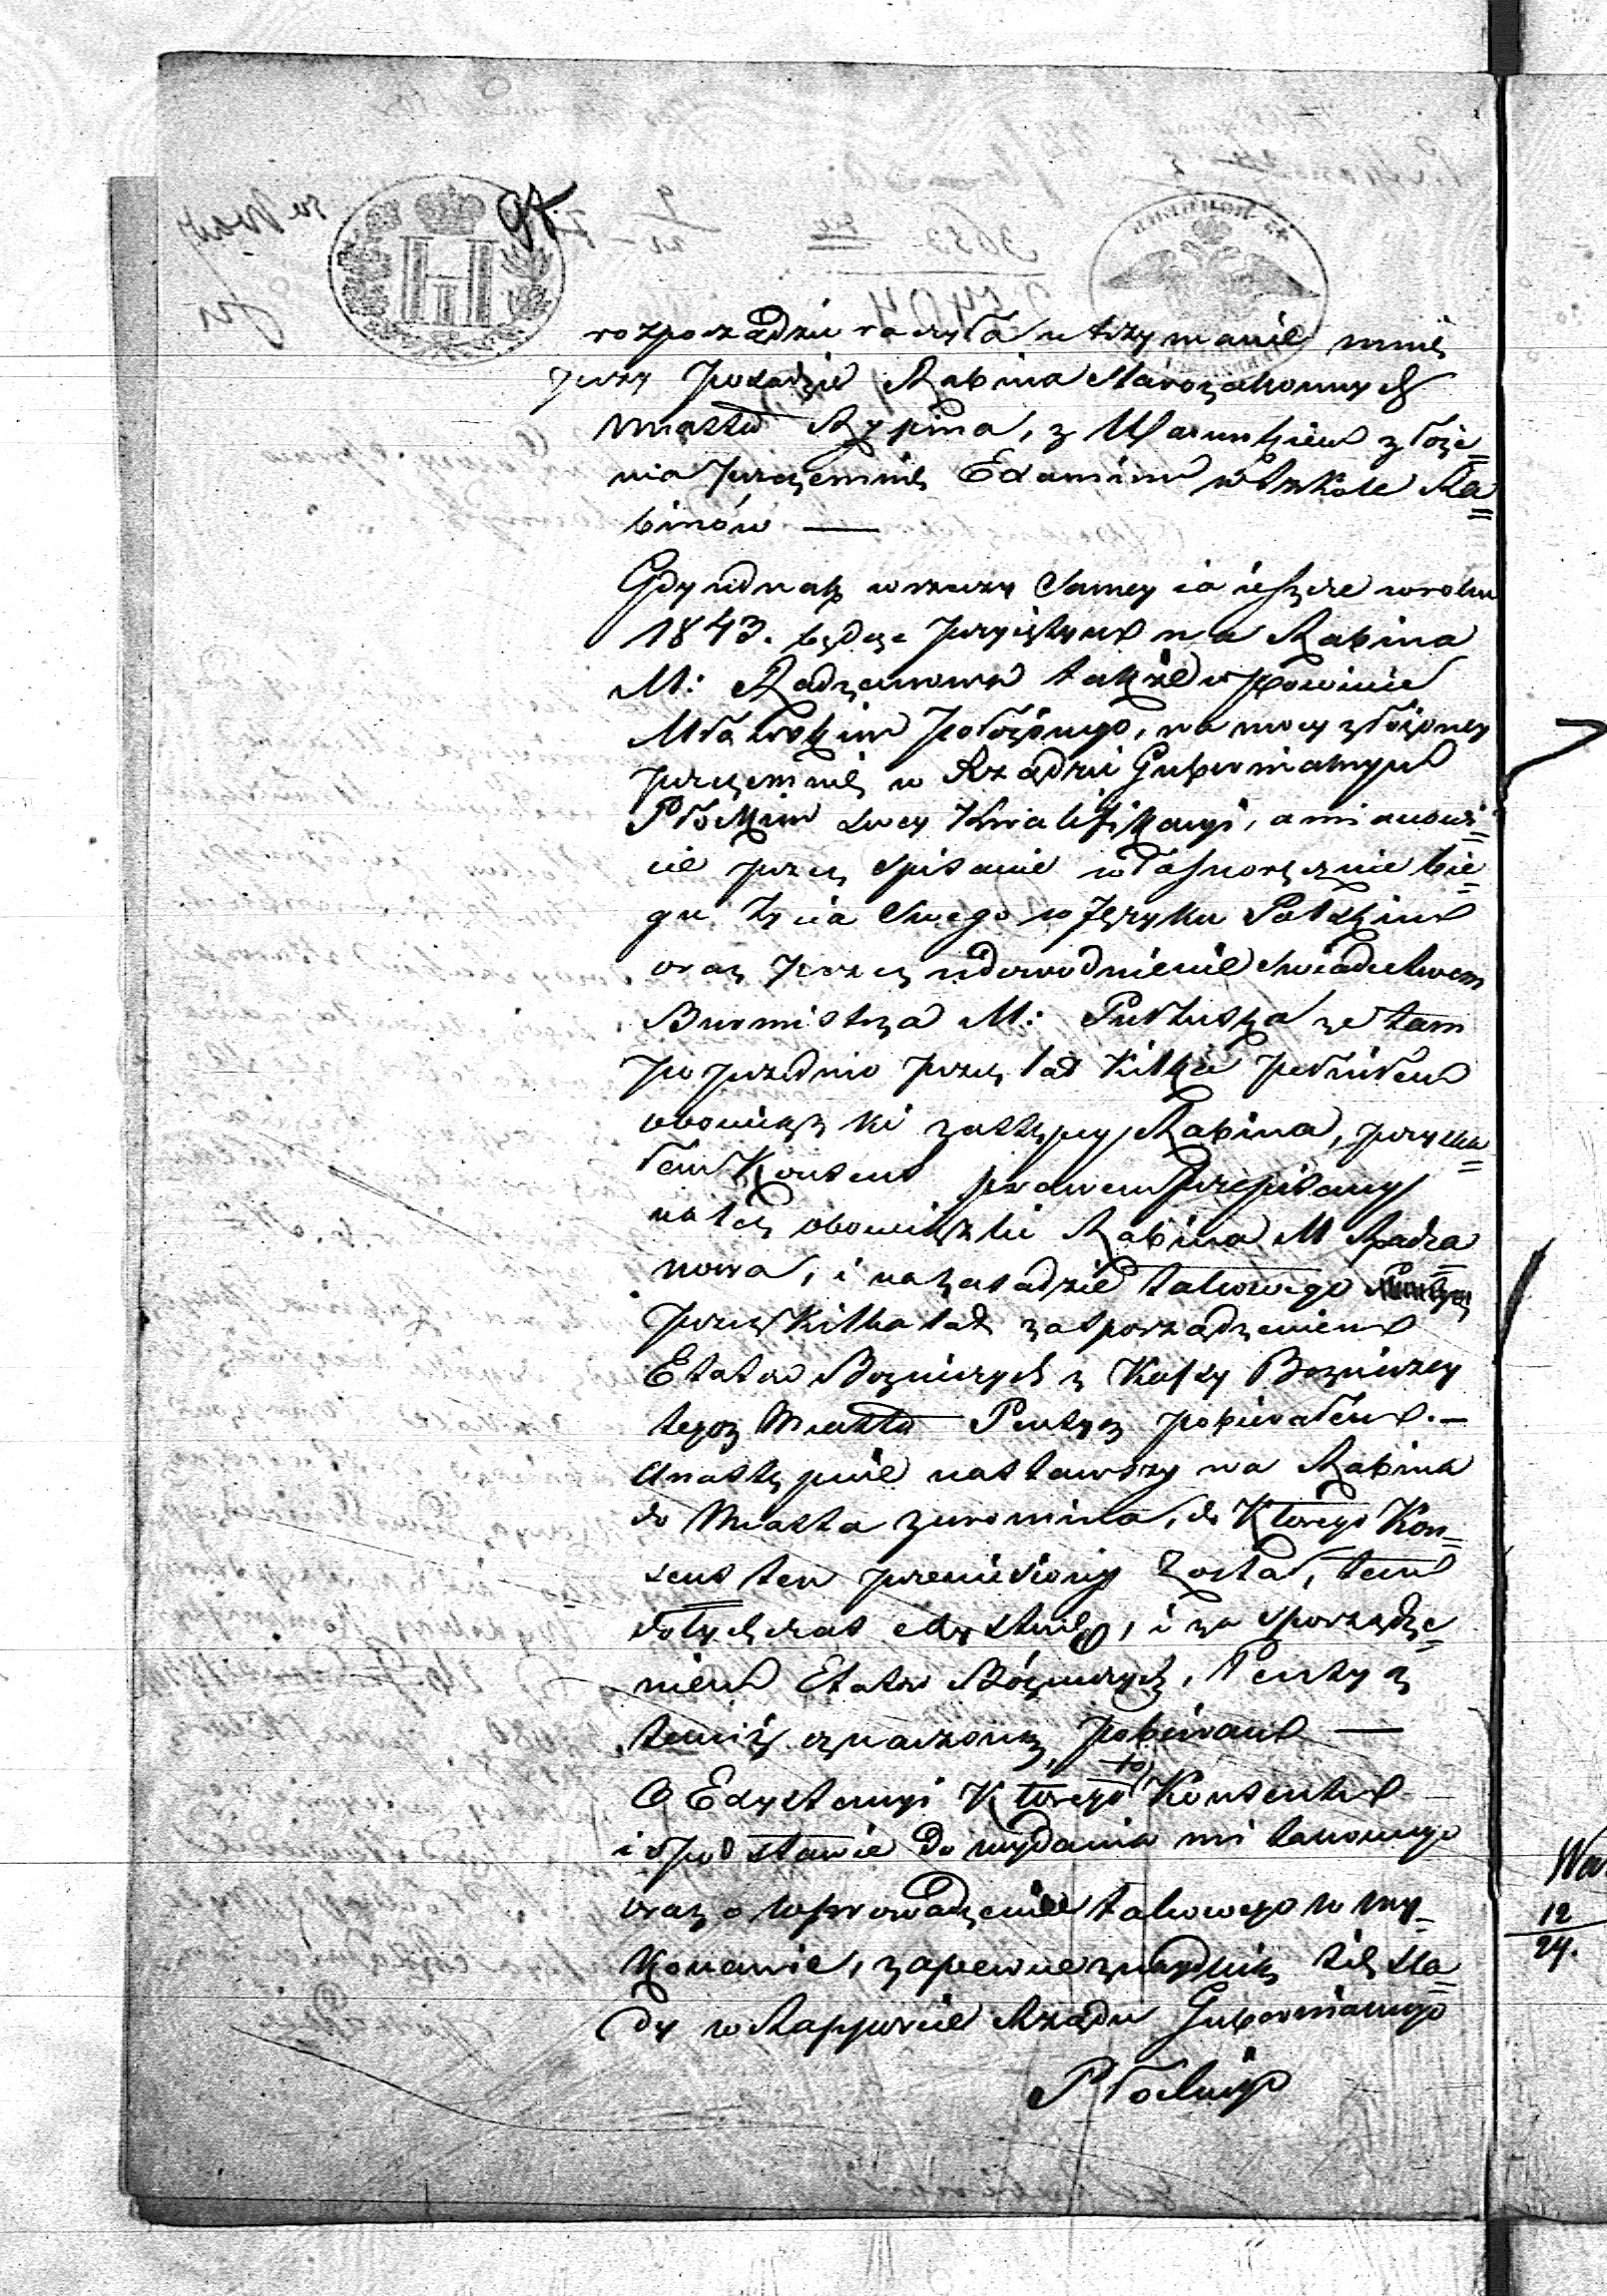 rozporządziu raczyła utrzymanie mnie
przy posadzie Rabina Starozakonnych
miasta Rypina, z Warunkiem złoże=
nia przezemnie Examinu w Szkole Ra=
binów —
Gdy iednak w rzeczy Samey ia ieszcze w roku
1843. będąc przyiętym na Rabina
M: Radzanowa także w Powiecie
Mławskim położonego, na mocy złożoney
przezemnie w Rządzie Gubernialnym
Płockim swey Kwalifikacyi, a mianowi=
cie przez spisanie własnoręcznie bie=
gu życia Swego w Języku Polskim
oraz przez udowodnienie świadectwem
Burmistrza M: Pułtuska że tam
poprzednio przez lat kilka pełniłem
obowiązki zastępcy Rabina, pozyska=
łem Konsens prawem przepisany
na też obowiązki Rabina M Radza=
nowa, i na zasadzie takowego
przez kilka lat za sporządzeniem
Etatów Bożniczych z Kassy Bożniczey
tegoż Miasta Pensyę pobierałem.—
a następnie nastawszy na Rabina
do Miasta Żuromina, do którego Kon=
sens ten przeniesiony został, tam
dotychczas exystuię, i za sporządze=
niem Etatów Bóżniczych, Pensyą
temiż oznaczoną pobieram —
O Exystencyi którego to Konsensu
i o podstawie do wydania mi takowego
oraz o wprowadzenie takowego w wy=
konanie, zapewne znaydują się śla=
dy w Rapporcie Rządu Gubernialnego
Płockiego
12
24.